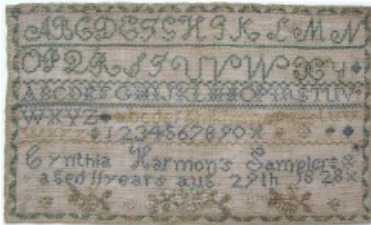 ABCDEFGHIKLMN
OPQRSTUVWXY
ABCDEFGHIKLMNOPQRSTUV
WXYZ
1234567890
Cynthia Harmon's Sampler
aged 11 years aug 29th 1828